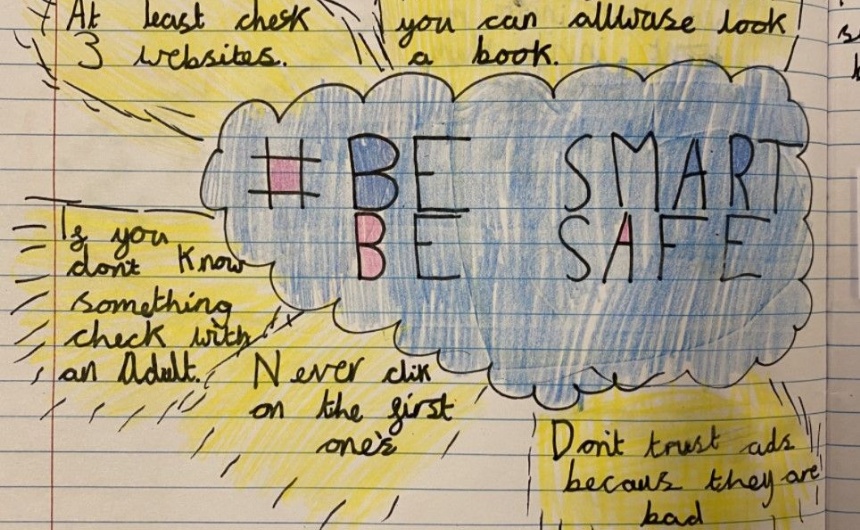 At least chesk
3 websites.
you can allwase look
a book.
# BE SMART
BE SAFE
If you
dont Know
something
check with
an Adult.
Never clik
on the first
one's
Don't trust ads
becaus they are
bad